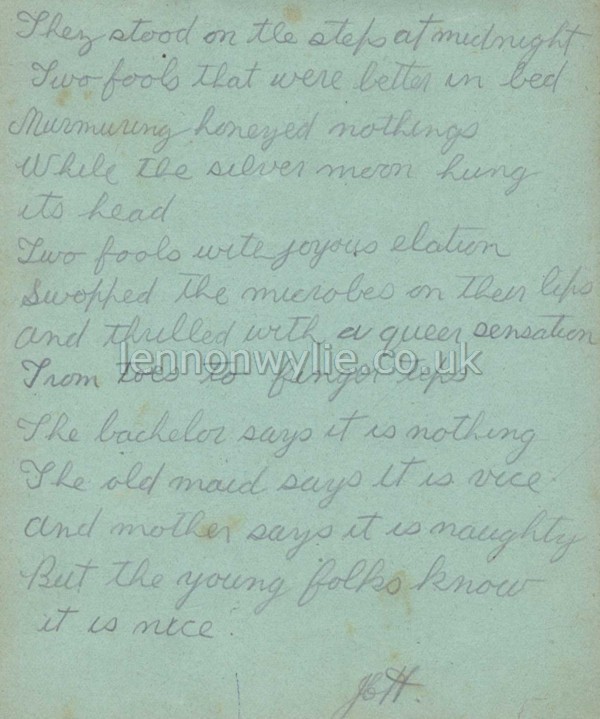 They stood on the steps at midnight
Two fools that were better in bed
Murmuring honeyed nothings
While the silver moon hung
its head
Two fools with joyous elation
Swopped the microbes on their lips
and thrilled with a queer sensation
From toes to finger tips
lennonwylie.co.uk
The bachelor says it is nothing
The old maid says it is vice
and mother says it is naughty
But the young folks know
it is nice.